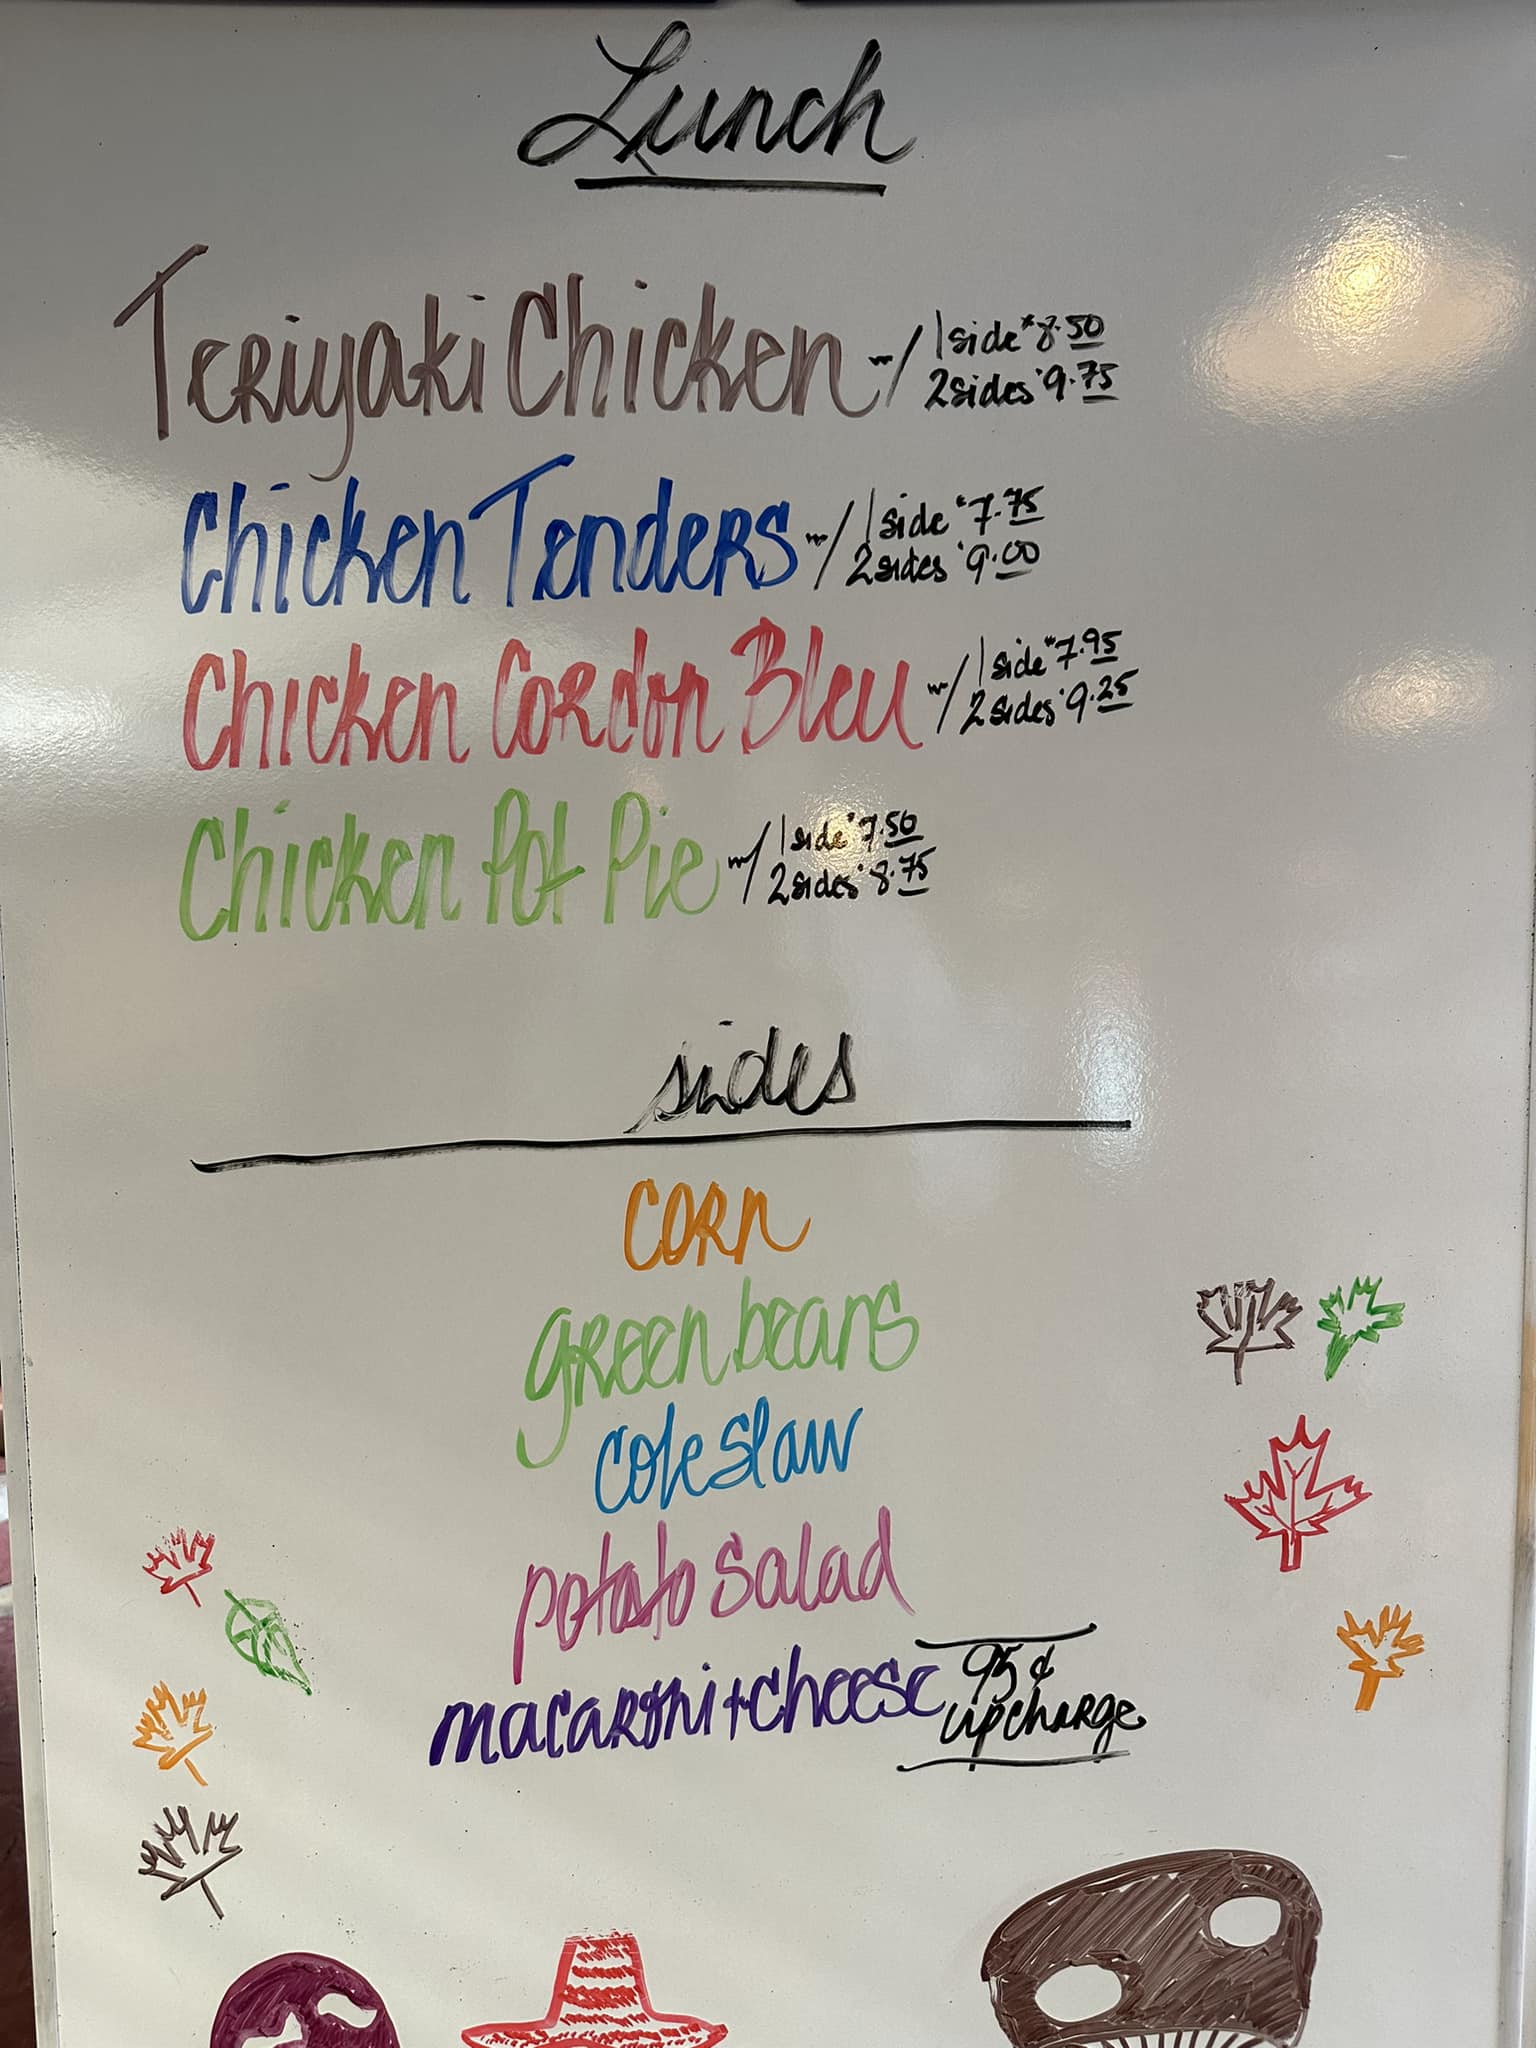 Lunch
Teriyaki Chicken w/ 1 side $8.50
2 sides $9.75
Chicken Tenders w/ 1 side $7.75
2 sides $9.00
Chicken Cordon Bleu w/ 1 side $7.95
2 sides $9.25
Chicken Pot Pie w/ 1 side $7.50
2 sides $8.75
sides
corn
green beans
coleslaw
potato salad
macaroni + cheese 95¢
upcharge